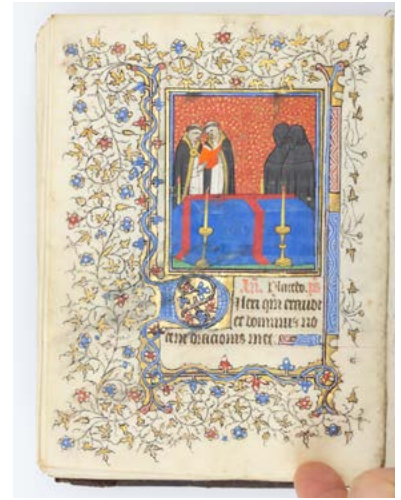 An̄. Placebo. ps
Dilexi qm̄ exaudi
et dominus vo
cem oracionis mee.